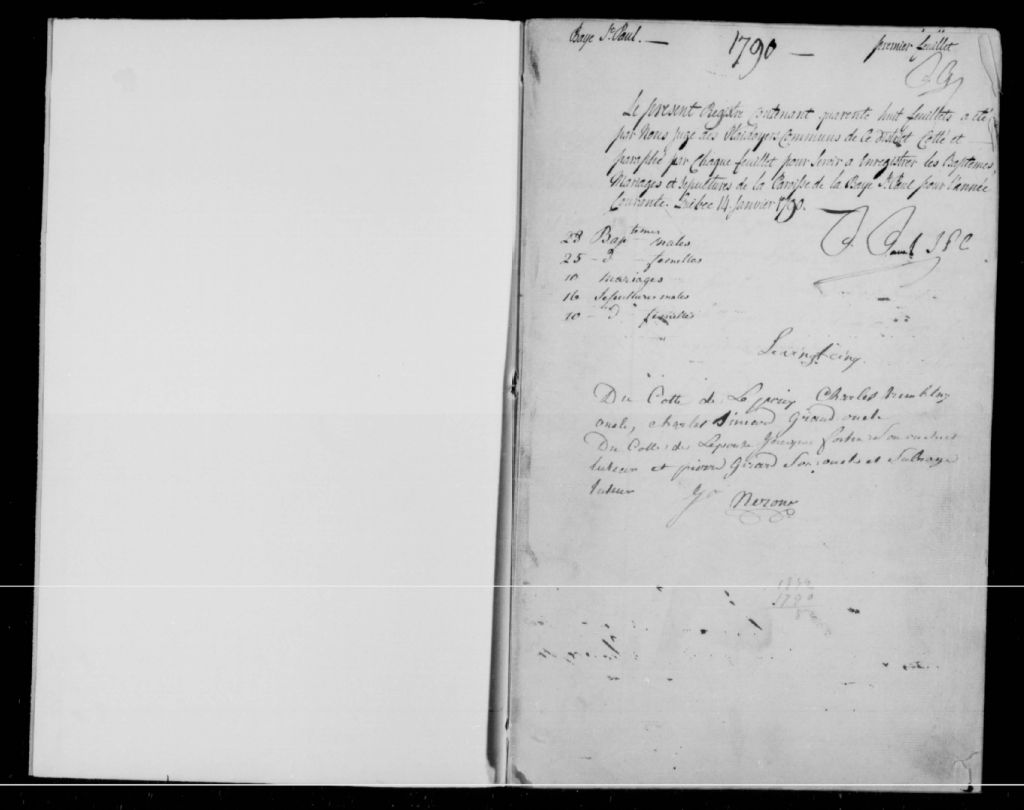 Baye St Paul. — 1790 — premier feuillet
Le present Registre contenant quarente huit feuillets a eté
par Nous juge des Plaidoyers Communs de ce District Cotté et
paraphé par Chaque feuillet pour Servir a Enregistrer les Baptemes,
Mariages et Sepultures de la Paroisse de la Baye St Paul pour l'année
Courante. Québec 14. Janvier 1790.
J P C
28 Baptemes males
25 - D - femelles
10 mariages
16 Sepultures males
10 - D femelles
Du Cotté de Charles
oncle, charles Simard Grand oncle
Du Cotté de Lepouse Son oncle et
tuteur et pierre Girard Son oncle et Subrogé
tuteur
1790